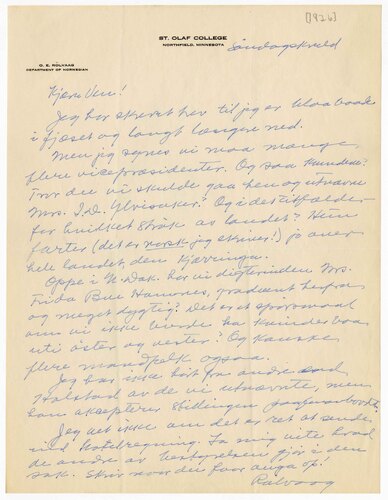 [1926]
ST. OLAF COLLEGE
NORTHFIELD, MINNESOTA
Søndagskveld
O. E. ROLVAAG
DEPARTMENT OF NORWEGIAN
Kjære Ven!
Jeg har skrevet her til jeg er blaa baade
i fjæset og langt længere ned.
Men jeg synes vi maa mange
flere vicepræsidenter. Og saa kvindene!
Tror du vi skulde gaa hen og utnævne
Mrs. I. D. Ylvisaker? Og i det tilfælde
for hvilket strøk av landet? Hun
farter (det er norsk jeg skriver!) jo over
hele landet, den kjæringa.
Oppe i N. Dak. har vi digterinden Mrs.
Frida Bue Hamnes, graduent herfra
og meget dygtig? Det er et spørsmaal
om vi ikke burde ha kvinder baa
uti øster og vester? Og kanske
flere mandfolk ogsaa.
Jeg har ikke hørt fra andre end
Halstad av de vi utnævnte, men
han aksepterer stillingen
Jeg vet ikke om det er ret at sende
ind hotelregning. La mig vite hvad
de andre av bestyrelsen gjør i den
sak. Skriv naar du faar auga op!
Rølvaag